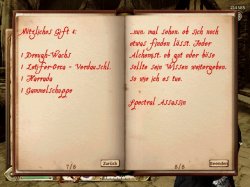 Nützliches Gift 1:
1 Dreugh-Wachs
1 Harrada
1 Gammelschuppe
7/8
Zurück
...nun. mal sehen, ob sich noch
etwas finden lässt. Jeder
Alchemist, ob gut oder böse
sollte sein Wissen weitergeben,
so wie ich es tue.
Spectral Assassin
8/8
Beenden